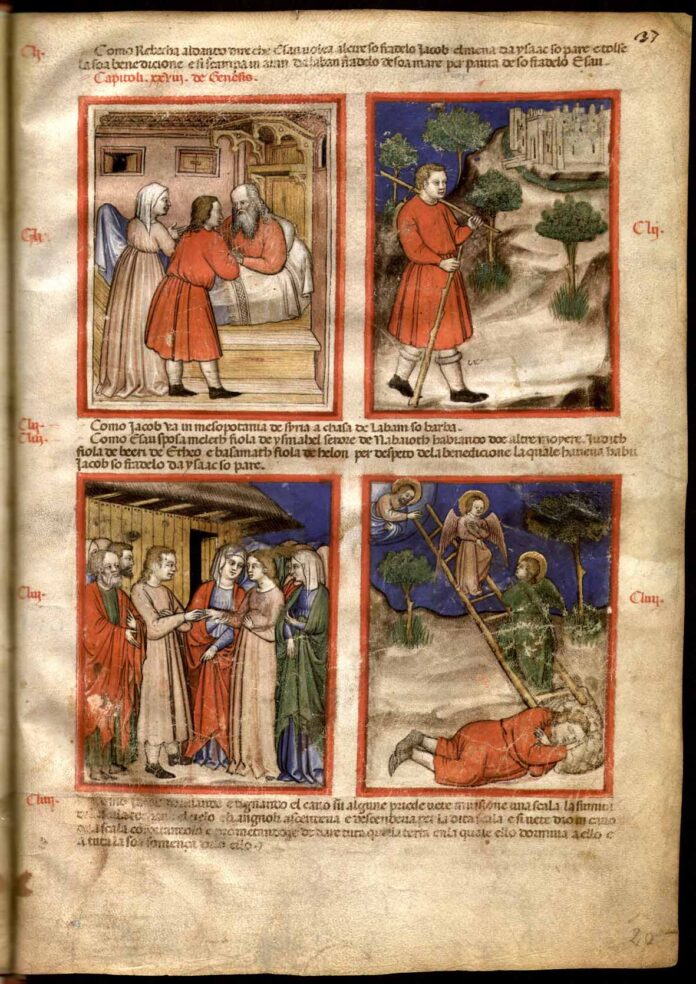 37
Clj. Como Rebecha aldando dire che Esau volea alcire so fradelo Jacob el mena da ysaac so pare e tolse
la soa benedicione e si scampa in aran da laban fradelo de soa mare per paura de so fradelo Esau.
Capitoli. xxviij. de Genesis.
Clj.
Clij.
Clij. Como Jacob va in mesopotania de syria a chasa de Labam so barba.
Cliij. Como Esau sposa meleth fiola de ysmahel serore de Nabaioth habiando doe altre moyere. Iudith
fiola de beeri de Etheo e basamath fiola de helon per despeto dela benedicione la quale haveva habu
Jacob so fradelo da ysaac so pare.
Cliij.
Cliiij.
Cliiij. Como dormando e pignando el cavo su algune priede vete in visione una scala la sumita
el cielo e li angnoli ascendeva e descendeva per la dita scala e si vete dio in cavo
dela scala e prometandoge de dare tuta quela terra in la quale ello dormiva a ello e
a tuta la so somença drio ello.
20